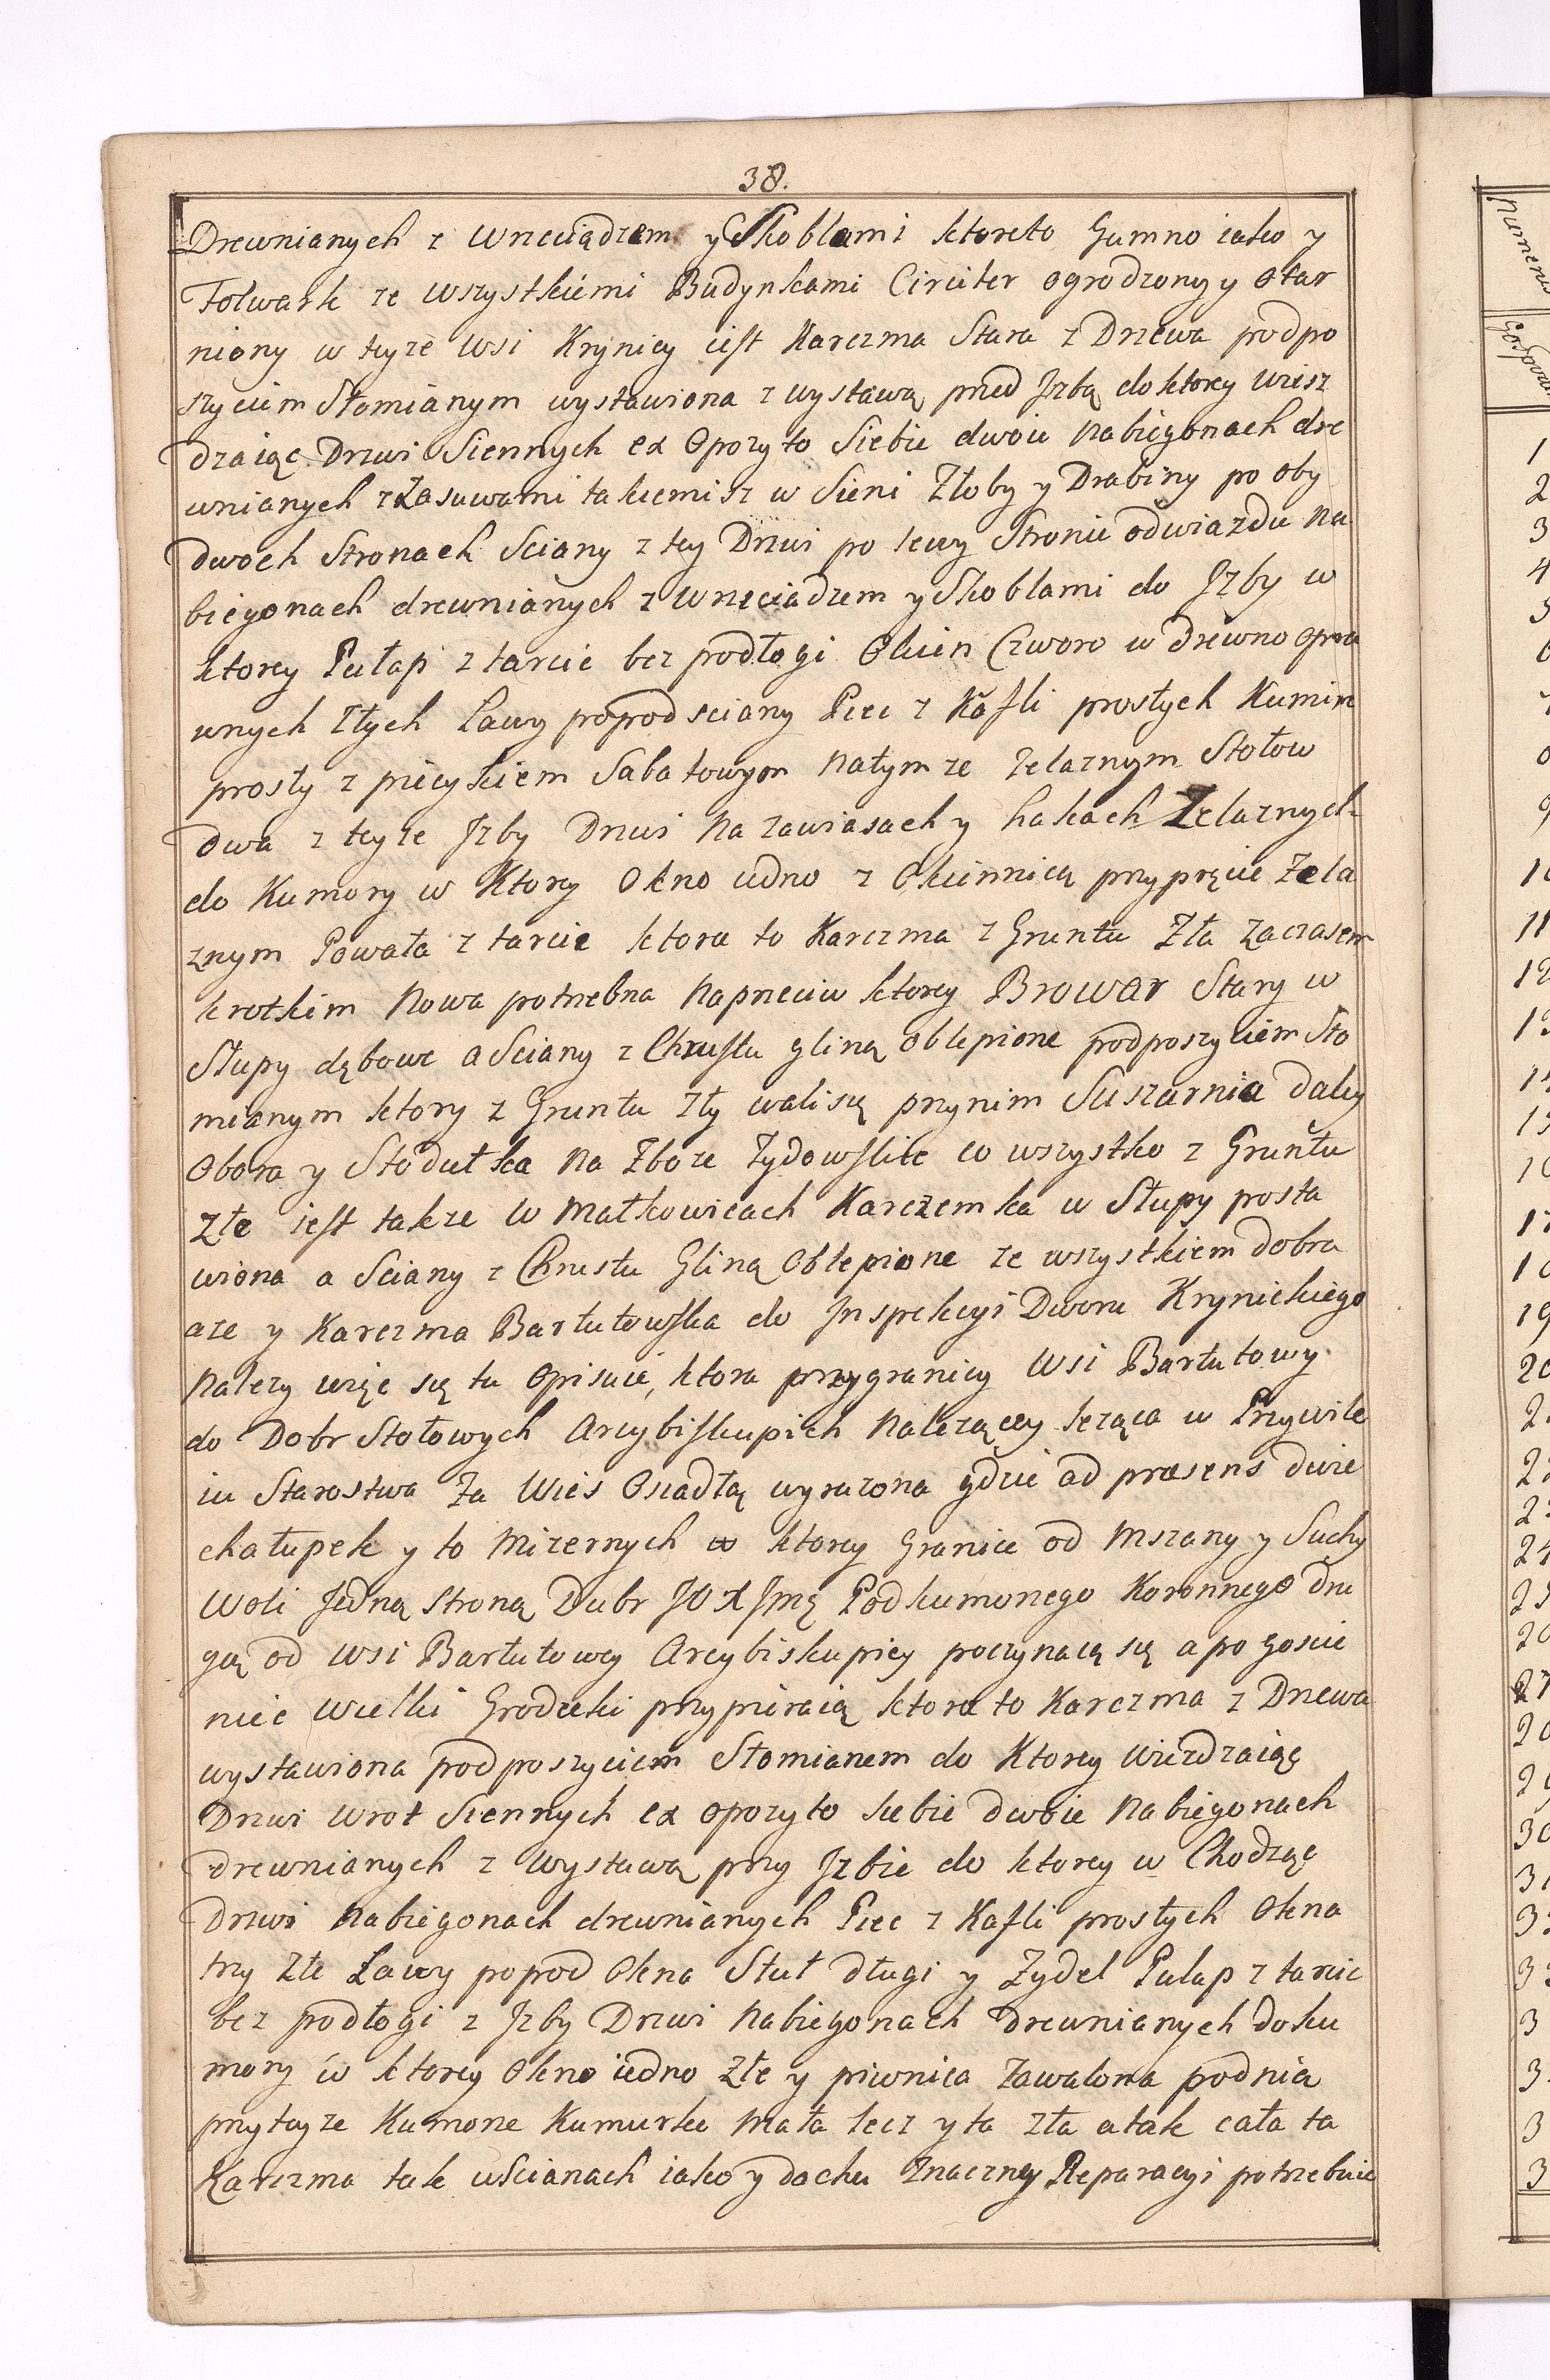 38.
Drewnianych z wrzeciądzem y Skoblami ktoreto Gumno iako y
Folwark ze wszystkiemi Budynkami Circiter ogrodzony y otar
niony w teyze Wsi Krynicy iest Karczma Stara z Drzewa podpo
szyciem Słomianym wystawiona z wystawą przed Jzbą do ktorey wiez
dzaiąc Drzwi Siennych ex Opozyto Siebie dwoie Nabiegonach dre
wnianych z Zasuwami takiemisz w Sieni Złoby y Drabiny po oby
dwoch Stronach Sciany z tey Drzwi po lewy Stronie odwiazdu na
biegonach drewnianych z wrzeciadzem y Skoblami do Jzby w
ktorey Pułap z tarcic bez podłogi Okien Czworo w drewno opra
wnych Złych Lawy popod sciany Piec z Kafli prostych Kumin
prosty z piecykiem Sabatowym Natym ze zelaznym Stołow
dwa z teyze Jzby Drzwi Na zawiasach y hakach Zelaznych
do Kumory w Ktorey Okno iedno z Okiennicą przypręcie Zela
znym Powała z tarcic ktora to Karczma z Gruntu Zła Zaczasem
krotkim Nowa potrzebna Naprzeciw ktorey Browar Stary w
Słupy dębowe a Sciany z Chrustu gliną oblepione podposzyciem Sło
mianym ktory z Gruntu zły wali się przynim Suszarnia daley
Obora y Stodułka Na Zboze Zydowskie co wszystko z Gruntu
Złe iest takze w Małkowicach Karczemka w Słupy posta
wiona a Sciany z Chrustu Gliną Oblepione ze wszystkiem dobra
aze y Karczma Bartutowska do Jnspekcyi Dworu Krynickiego
Nalezy więc się tu Opisuie, ktora przygranicy Wsi Bartutowy
do Dobr Stołowych Arcybiskupich Nalezącey leząca w Przywile
iu Starostwa Za Wies Osiadłą wyrazona gdzie ad præsens dwie
chałupek y to Mizernych w ktorey Granice od Mszany y Suchy
Woli Jedną Stroną Dubr JWX Jmę Podkumorzego Koronnego dru
gą od Wsi Bartutowey Arcybiskupiey poczynaią się a po Goscie
niec Wielki Grodecki przypieraią ktora to Karczma z Drzewa
wystawiona podposzyciem Słomianem do Ktorey wiezdzaiąc
Drzwi Wrot Siennych ex opozyto siebie dwoie Nabiegonach
drewnianych z wystawą przy Jzbie do ktorey w Chodząc
Drzwi Nabiegonach drewnianych Piec z Kafli prostych Okna
trzy Złe Lawy popod Okna Stuł długi y Zydel Pulap z tarcic
bez podłogi z Jzby Drzwi Nabiegonach Drewnianych doku
mory w ktorey Okno iedno Złe y piwnica Zawalona podnią
przyteyze Kumorze Kumurka Mała lecz y ta zła a tak cała ta
Karczma tak wScianach iako y dachu Znaczney Reparacyi potrzebuie